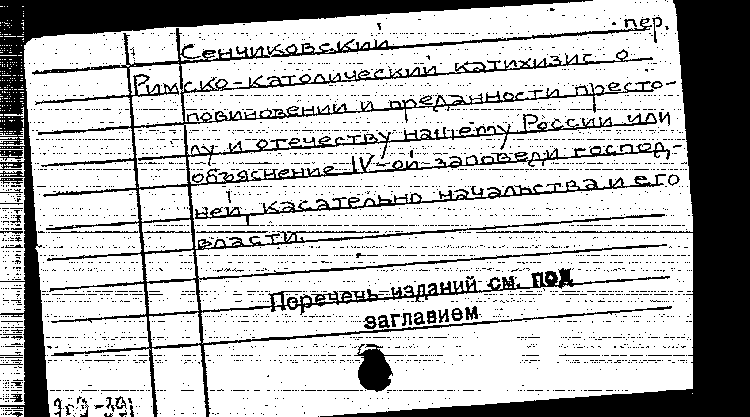 Сенчиковский пер.
Римско-католический катихизис о
повиновении и преданности престо-
лу и отечеству нашему России или
объяснение IV-ой заповеди господ,-
ней, касательно начальства и его
власти.
Перечень изданий см. под
заглавием